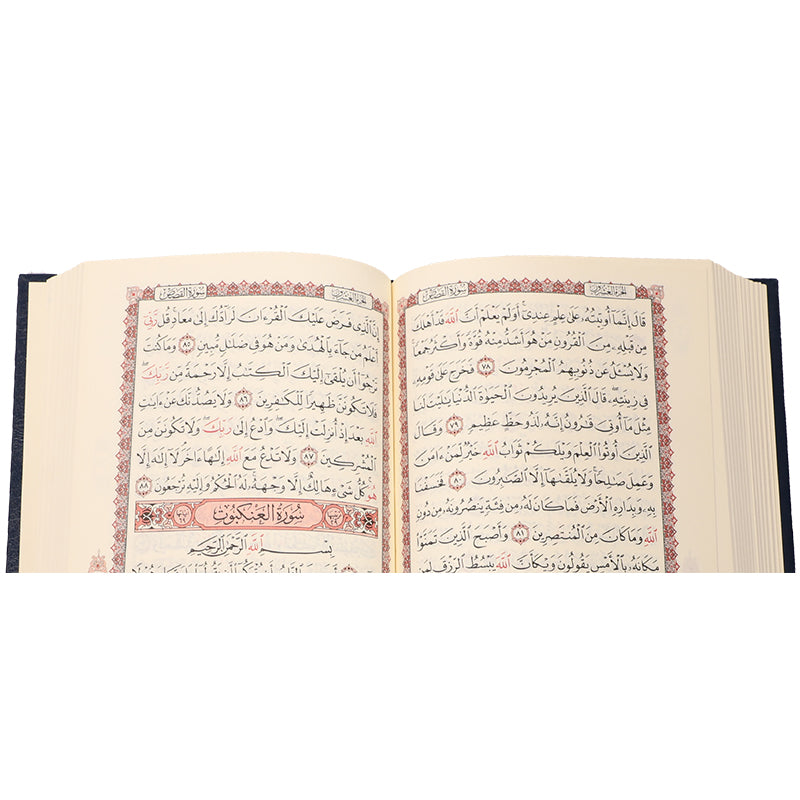 الجزء العشرون
سورة القصص
قَالَ إِنَّمَآ أُوتِيتُهُۥ عَلَىٰ عِلْمٍ عِندِىٓ أَوَلَمْ يَعْلَمْ أَنَّ ٱللَّهَ قَدْ أَهْلَكَ
مِن قَبْلِهِۦ مِنَ ٱلْقُرُونِ مَنْ هُوَ أَشَدُّ مِنْهُ قُوَّةً وَأَكْثَرُ جَمْعًا
وَلَا يُسْـَٔلُ عَن ذُنُوبِهِمُ ٱلْمُجْرِمُونَ ٧٨ فَخَرَجَ عَلَىٰ قَوْمِهِۦ
فِى زِينَتِهِۦ قَالَ ٱلَّذِينَ يُرِيدُونَ ٱلْحَيَوٰةَ ٱلدُّنْيَا يَـٰلَيْتَ لَنَا
مِثْلَ مَآ أُوتِىَ قَـٰرُونُ إِنَّهُۥ لَذُو حَظٍّ عَظِيمٍ ٧٩ وَقَالَ
ٱلَّذِينَ أُوتُوا۟ ٱلْعِلْمَ وَيْلَكُمْ ثَوَابُ ٱللَّهِ خَيْرٌ لِّمَنْ ءَامَنَ
وَعَمِلَ صَـٰلِحًا وَلَا يُلَقَّىٰهَآ إِلَّا ٱلصَّـٰبِرُونَ ٨٠ فَخَسَفْنَا
بِهِۦ وَبِدَارِهِ ٱلْأَرْضَ فَمَا كَانَ لَهُۥ مِن فِئَةٍ يَنصُرُونَهُۥ مِن دُونِ
ٱللَّهِ وَمَا كَانَ مِنَ ٱلْمُنتَصِرِينَ ٨١ وَأَصْبَحَ ٱلَّذِينَ تَمَنَّوْا۟
مَكَانَهُۥ بِٱلْأَمْسِ يَقُولُونَ وَيْكَأَنَّ ٱللَّهَ يَبْسُطُ ٱلرِّزْقَ لِمَن
الجزء العشرون
سورة القصص
إِنَّ ٱلَّذِى فَرَضَ عَلَيْكَ ٱلْقُرْءَانَ لَرَآدُّكَ إِلَىٰ مَعَادٍ قُل رَّبِّىٓ
أَعْلَمُ مَن جَآءَ بِٱلْهُدَىٰ وَمَنْ هُوَ فِى ضَلَـٰلٍ مُّبِينٍ ٨٥ وَمَا كُنتَ
تَرْجُوٓا۟ أَن يُلْقَىٰٓ إِلَيْكَ ٱلْكِتَـٰبُ إِلَّا رَحْمَةً مِّن رَّبِّكَ
فَلَا تَكُونَنَّ ظَهِيرًا لِّلْكَـٰفِرِينَ ٨٦ وَلَا يَصُدُّنَّكَ عَنْ ءَايَـٰتِ
ٱللَّهِ بَعْدَ إِذْ أُنزِلَتْ إِلَيْكَ وَٱدْعُ إِلَىٰ رَبِّكَ وَلَا تَكُونَنَّ مِنَ
ٱلْمُشْرِكِينَ ٨٧ وَلَا تَدْعُ مَعَ ٱللَّهِ إِلَـٰهًا ءَاخَرَ لَآ إِلَـٰهَ إِلَّا
هُوَ كُلُّ شَىْءٍ هَالِكٌ إِلَّا وَجْهَهُۥ لَهُ ٱلْحُكْمُ وَإِلَيْهِ تُرْجَعُونَ ٨٨
سُورَةُ العَنكَبُوتِ
بِسْمِ ٱللَّهِ ٱلرَّحْمَـٰنِ ٱلرَّحِيمِ